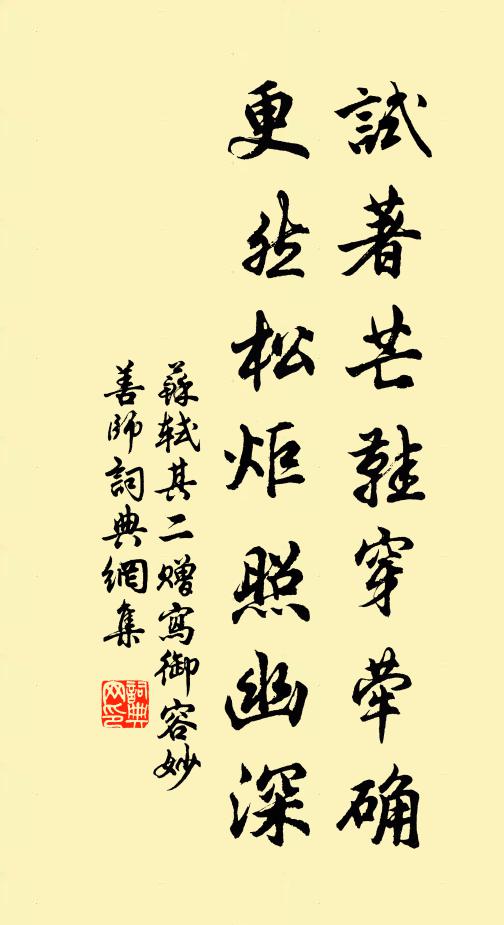 試著芒鞋穿犖确
更然松炬照幽深
蘇軾其二贈寫御容妙
善師詞典網集
詞典
网印